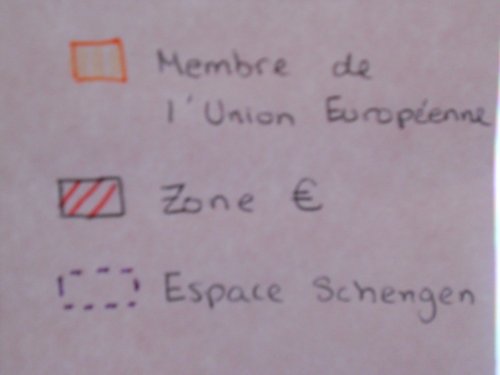 Membre de
l'Union Européenne
Zone €
Espace Schengen